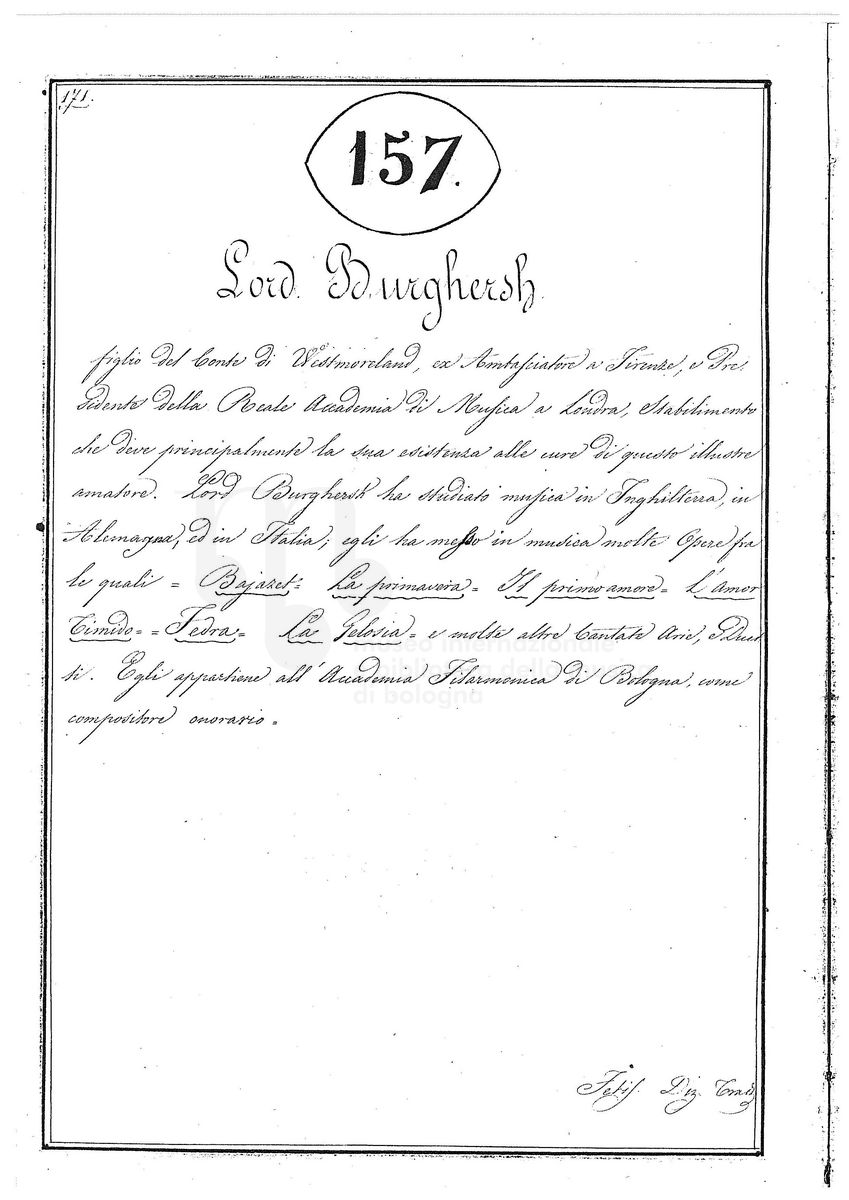 171.
157.
Lord Burghersh
figlio del Conte di Westmoreland, ex Ambasciatore a Firenze, e Pre.
sidente della Reale Accademia di Musica a Londra, Stabilimento
che deve principalmente la sua esistenza alle cure di questo illustre
amatore. Lord Burghersh ha studiato musica in Inghilterra, in
Alemagna, ed in Italia; egli ha messo in musica molte Opere fra
le quali = Bajazet = La primavera = Il primo amore = L'Amor
Timido = = Fedra = La Gelosia = e molte altre Cantate Arie, e Duet
ti. Egli appartiene all'Accademia Filarmonica di Bologna, come
compositore onorario =
museo internazionale
e biblioteca della musica
di bologna
Fetis. Diz.